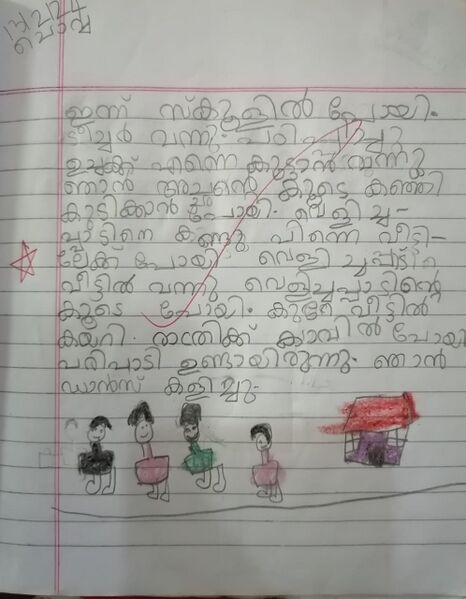 ഇന്ന് സ്കൂളിൽ പോയി.
ടീച്ചർ വന്നു. പഠിപ്പിച്ചു
ഉച്ചക്ക് എന്നെ കൂട്ടാൻ വന്നു
ഞാൻ അച്ഛന്റെ കൂടെ കഞ്ഞി
കുടിക്കാൻ പോയി. വെളിച്ച-
പ്പാടിനെ കണ്ടു പിന്നെ വീട്ടി-
ലേക്ക് പോയി. വെളിച്ചപ്പാട്
വീട്ടിൽ വന്നു വെളിച്ചപ്പാടിന്റെ
കൂടെ പോയി. കുറേ വീട്ടിൽ
കയറി. രാത്രിക്ക് കാവിൽ പോയി
പരിപാടി ഉണ്ടായിരുന്നു. ഞാൻ
ഡാൻസ് കളിച്ചു.